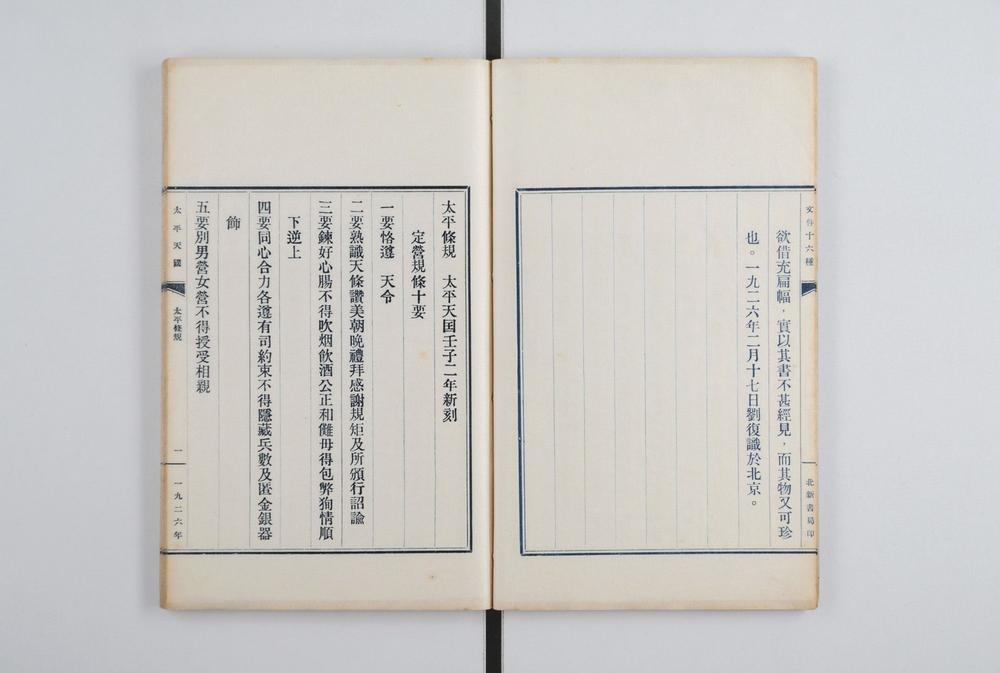 文件十六種
北新書局印
欲借充扁幅，實以其書不甚經見，而其物又可珍
也。一九二六年二月十七日劉復識於北京。
太平條規　太平天囯壬子二年新刻
定營規條十要
一要恪遵　天令
二要熟識天條讚美朝晚禮拜感謝規矩及所頒行詔諭
三要鍊好心腸不得吹烟飲酒公正和儺毋得包弊狥情順
下逆上
四要同心合力各遵有司約束不得隱藏兵數及匿金銀器
飾
五要別男營女營不得授受相親
太平天國
太平條規
一
一九二六年